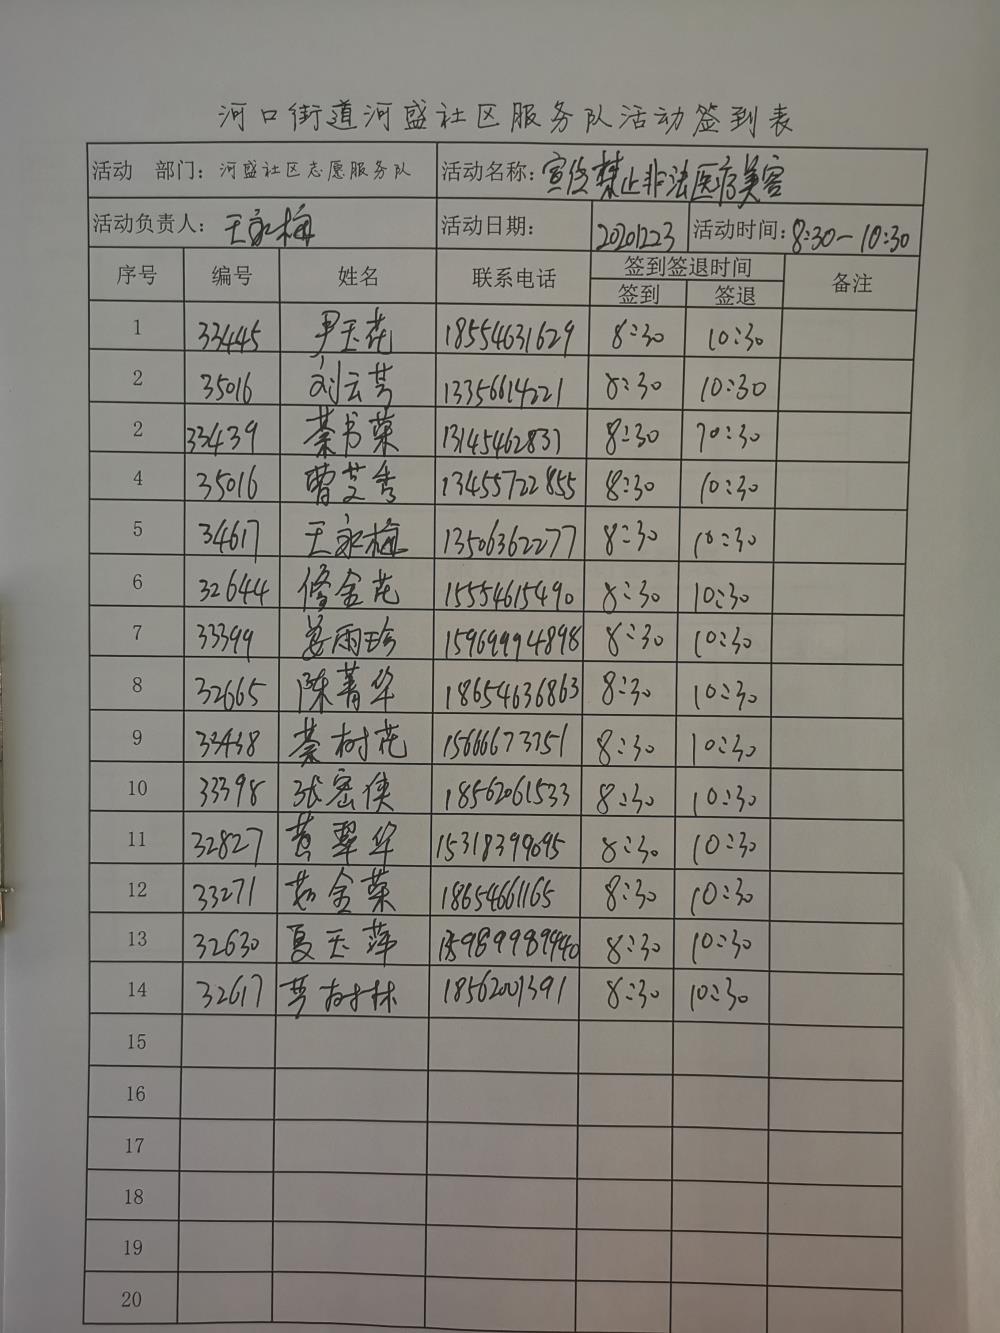 河口街道河盛社区服务队活动签到表
活动 部门：河盛社区志愿服务队 活动名称：宣传禁止非法医疗美容
活动负责人：王永梅 活动日期： 20201223 活动时间：8:30-10:30
序号 编号 姓名 联系电话 签到签退时间 备注
签到 签退
1 33445 尹玉花 18554631629 8:30 10:30
2 35016 刘云芳 13356614221 8:30 10:30
2 33439 綦书荣 13145462837 8:30 10:30
4 35016 曹艾秀 13455722855 8:30 10:30
5 34617 王永梅 13506362277 8:30 10:30
6 32644 修金花 15554615490 8:30 10:30
7 33399 姜雨珍 15969994898 8:30 10:30
8 32665 陈菁华 18654636863 8:30 10:30
9 33438 綦树花 15666673751 8:30 10:30
10 33398 张密侠 18562061533 8:30 10:30
11 32827 黄翠华 15318399095 8:30 10:30
12 33271 金荣 18654661165 8:30 10:30
13 32630 夏玉萍 8:30 10:30
14 32617 树林 18562001391 8:30 10:30
15
16
17
18
19
20